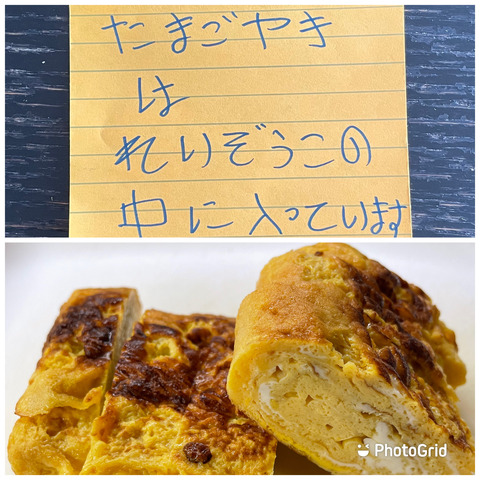 たまごやき
は
れいぞうこの
中に入っています
PhotoGrid